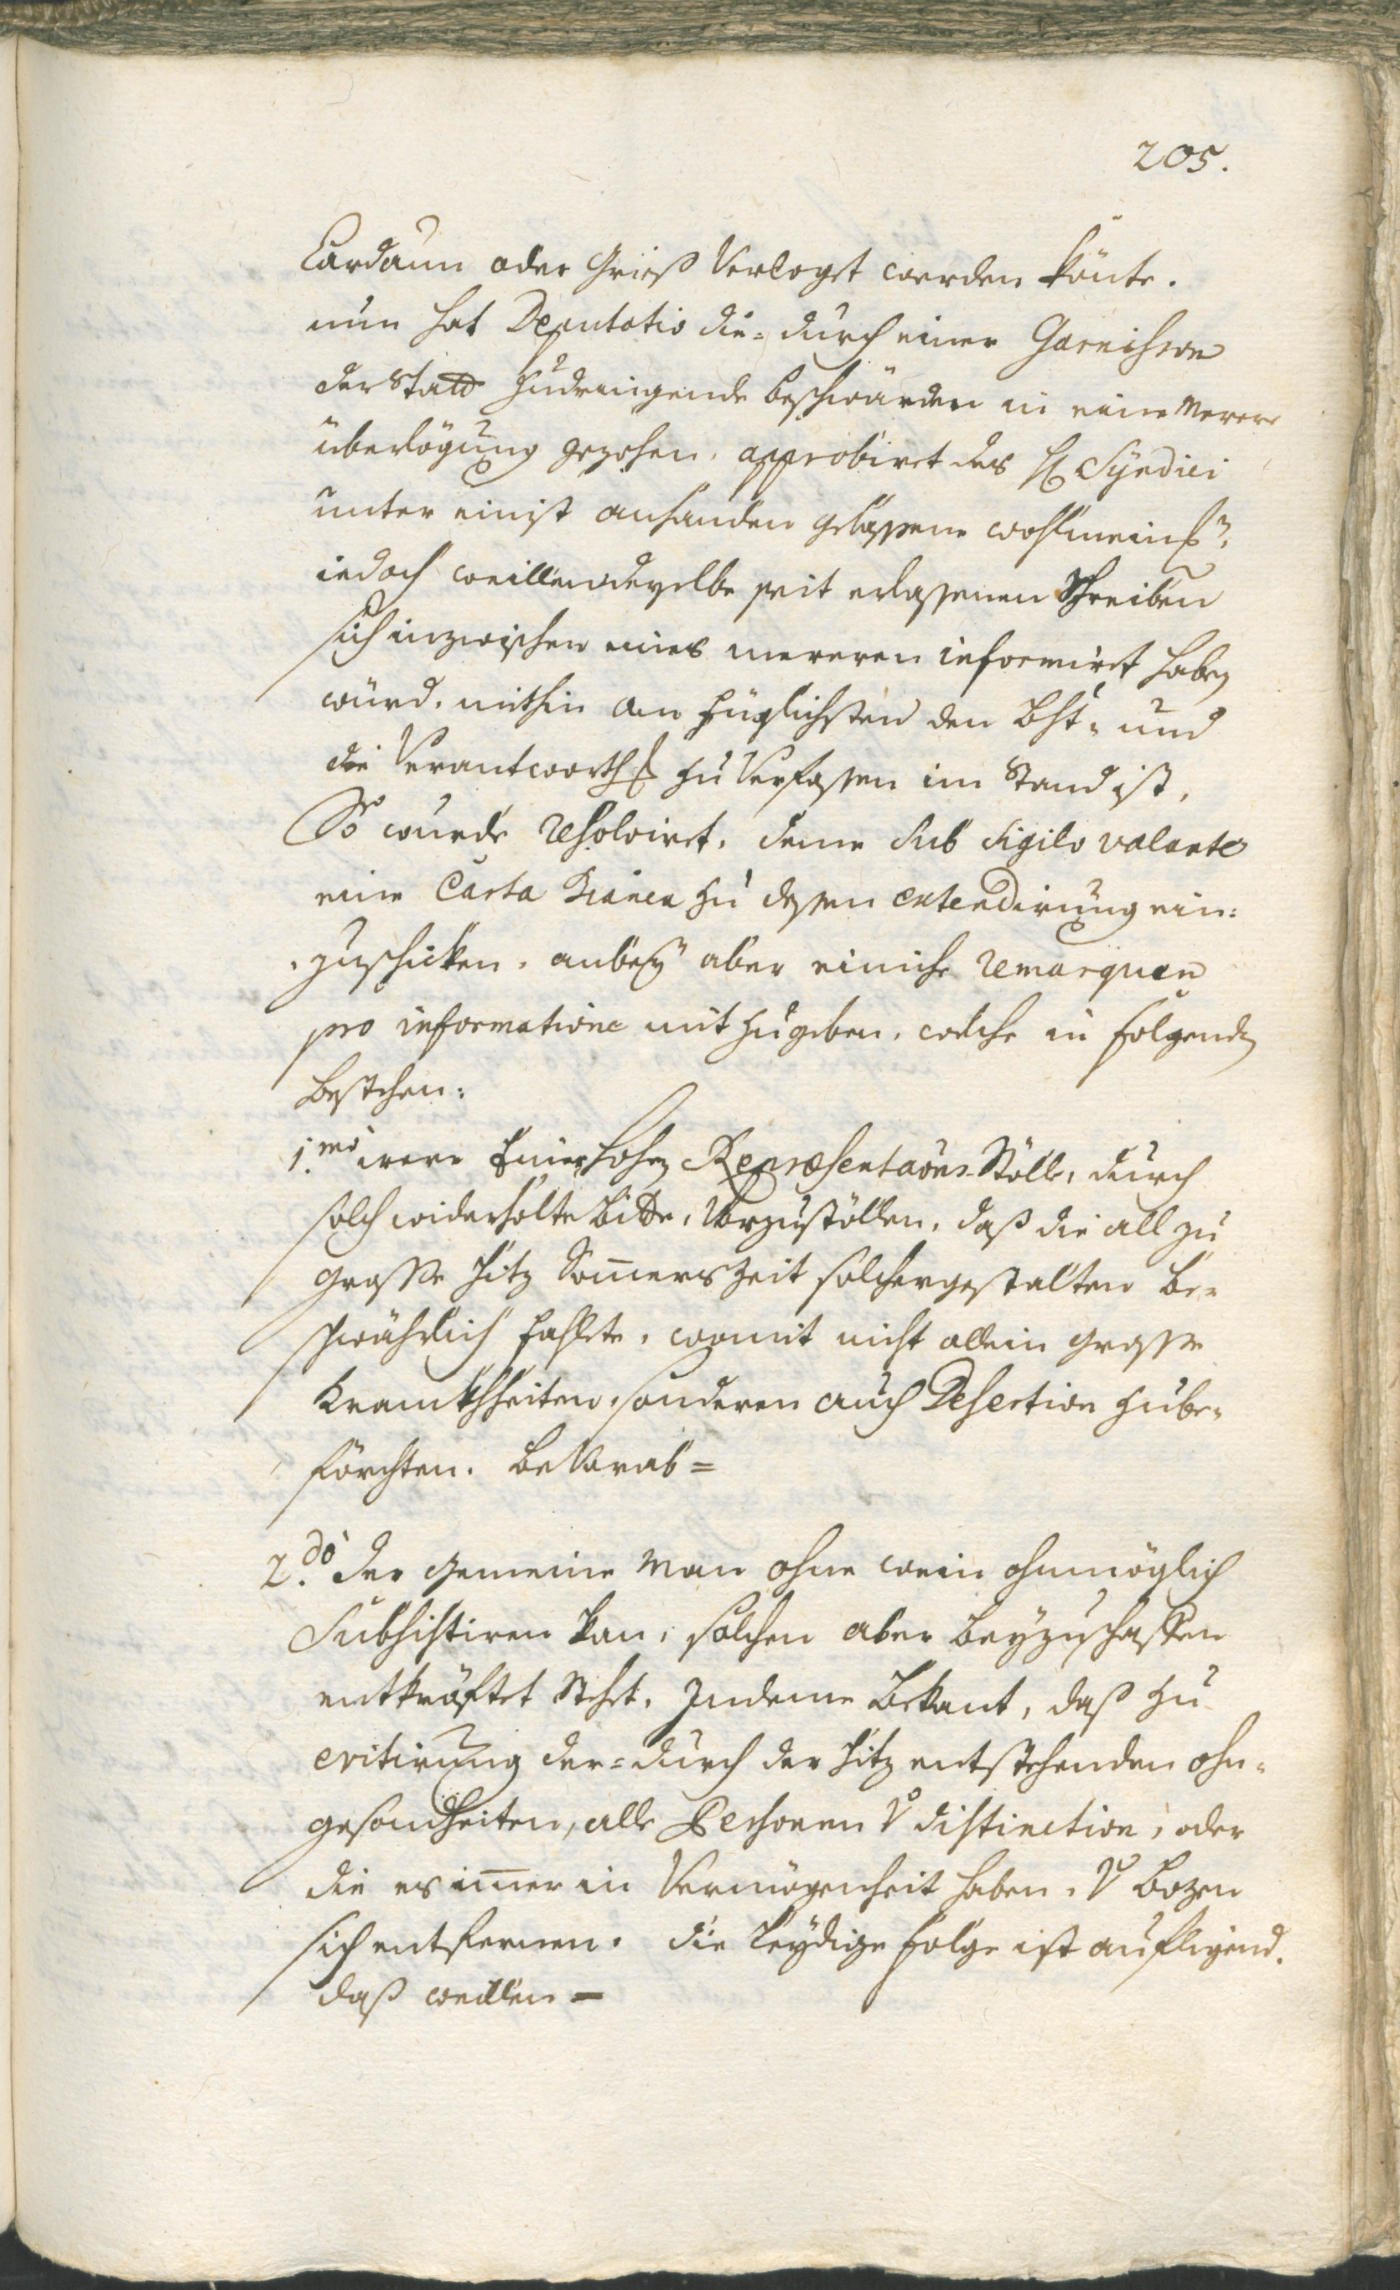 205.
Cardaun oder Grieß verlogt werden könte.
nun hat Deputatio die= durch einer Garnison
der Statt zudringende beschwärden in eine merere
überlögung gezohen. approbiret des H Syndici
unter einist anhanden gelassene wohlmein
iedoch weillen derselbe seit erlassenen Schreiben
sich inzwischen eines mereren informiret haben
würd, mithin am füglichsten den Bht= und
die Verantworth zu verfassen im Stand ist.
So wurde resolviret, deme sub sigilo valante
eine Carta bianca zu dessen extendirung ein=
zuschicken, anbey aber einiche remarquen
pro informatione mit zugeben, welche in folgenden
bestehen:
1.mo were Einer hohen Repræsentaõns Stölle, durch
solch widerholte bitte, vorzustöllen, daß die all zu
grosse Hitz Somerszeit solchergestalten be=
schwährlich fahlete, womit nicht allein grosse
kranckhheiten, sonderen auch Desertion zube=
förchten. bevorab=
2.do der gemeine Man ohne wein ohnmöglich
subsistiren kan, solchen aber beyzuschaffen
entkräftet stehet. Indeme bekant, daß zu
evitirung der= durch der Hitz entstehenden ohn=
gesondheiten, alle Persohnen v distinction, oder
die es imer in Vermögenheit haben, v Bozen
sich entfernen. die leydige folge ist aufligend.
daß weillen=